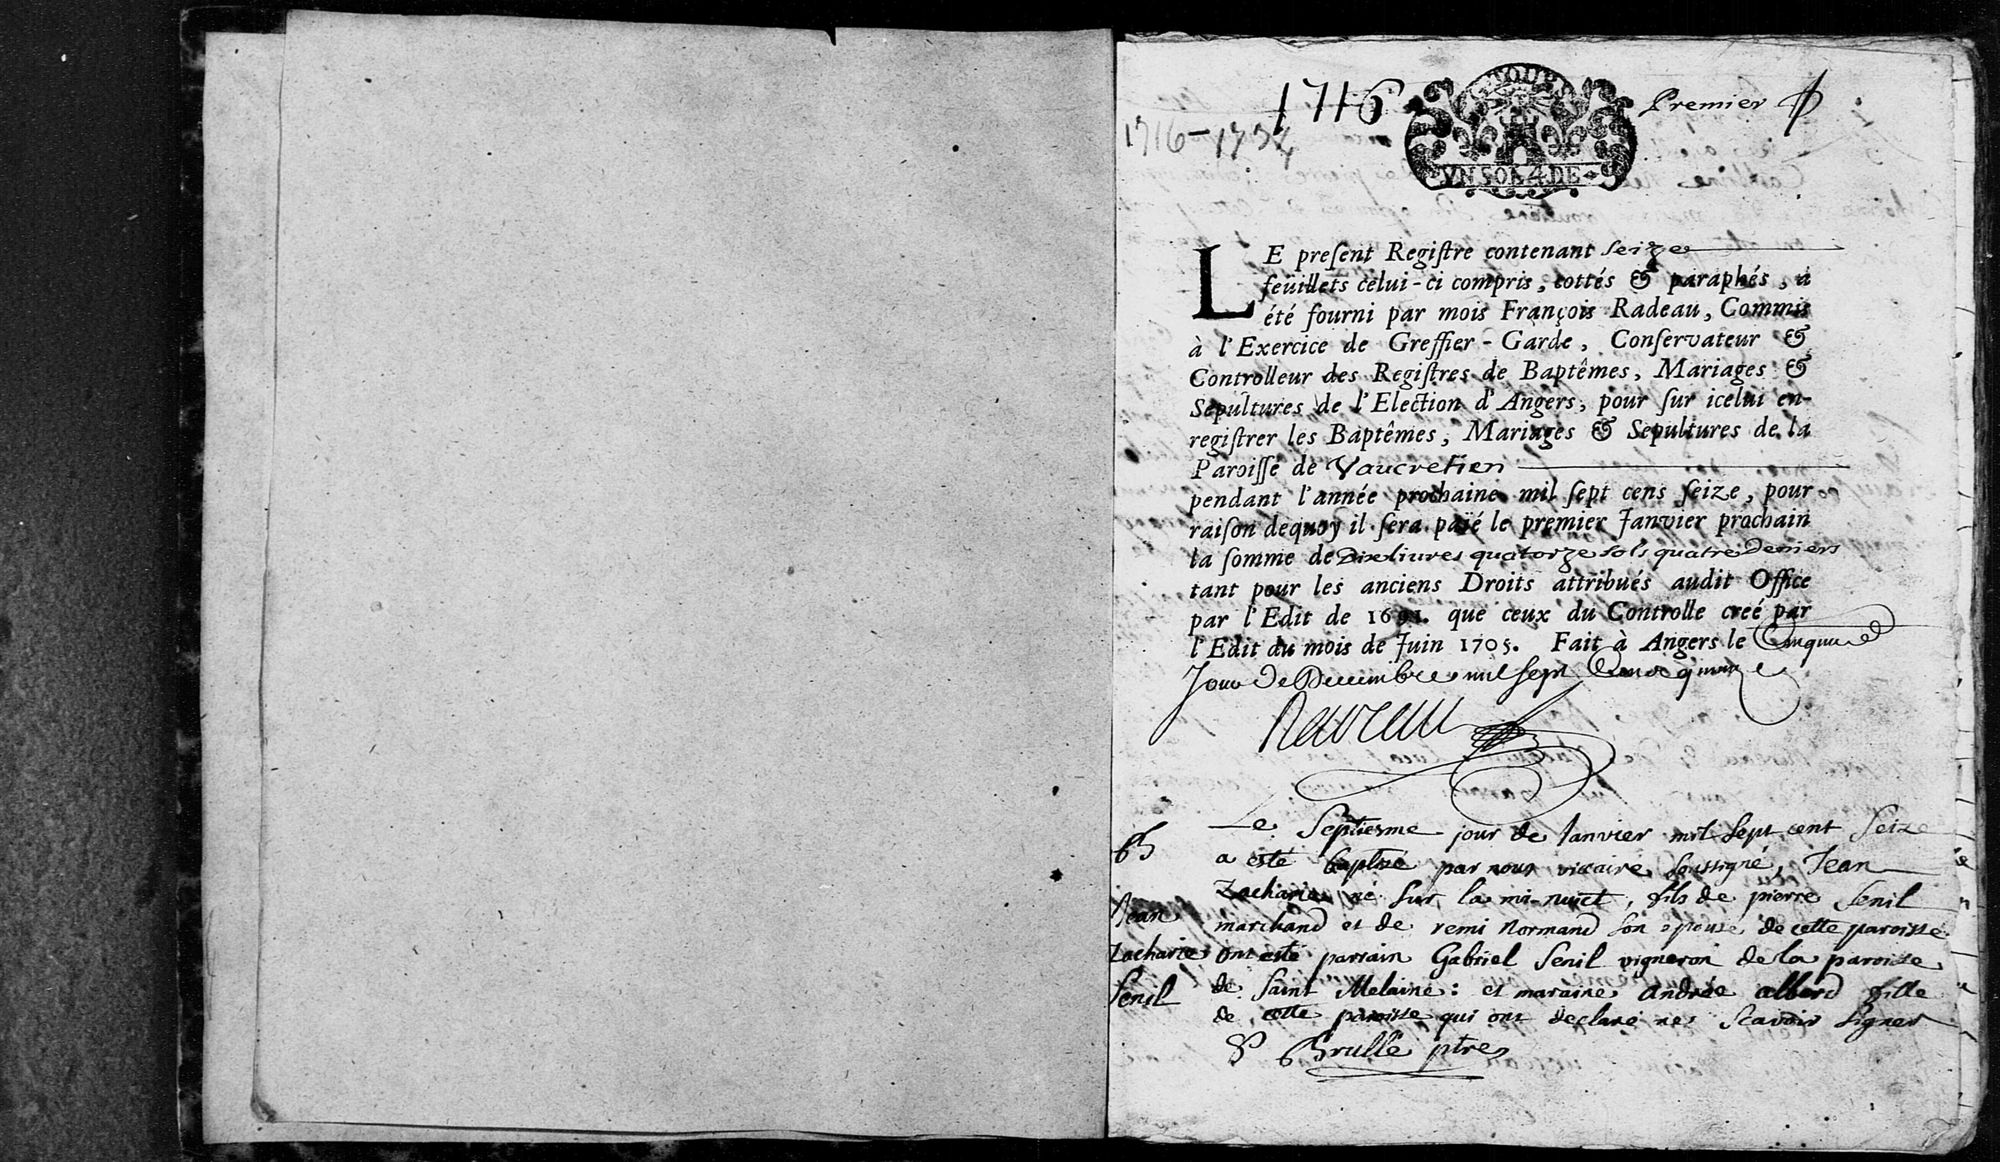 1716
TOURS
UN SOL 4 DE
Premier
1716-1734
LE preſent Regiſtre contenant seize
feuillets celui-ci compris, cottés & paraphés, a
été fourni par mois François Radeau, Commis
à l'Exercice de Greffier-Garde, Conſervateur &
Controlleur des Regiſtres de Baptêmes, Mariages &
Sepultures de l'Election d'Angers, pour ſur icelui en-
regiſtrer les Baptêmes, Mariages & Sepultures de la
Paroiſſe de Vaucretien
pendant l'année prochaine mil ſept cens ſeize, pour
raiſon dequoy il ſera païé le premier Janvier prochain
la ſomme de Dix livres quatorze sols quatre deniers
tant pour les anciens Droits attribués audit Office
par l'Edit de 1691. que ceux du Controlle creé par
l'Edit du mois de Juin 1705. Fait à Angers le Cinquie
Jour de Decembre mil sept Cens quinze
B
Jean
Zacharie
Senil
Le Septiesme jour de Janvier mil Sept cent Seize
a esté baptisé par nous vicaire soussigné, Jean
Zacharie né sur la mi-nuict, fils de pierre Senil
marchand et de remi Normand son epouse de cette paroisse
ont esté parrain Gabriel Senil vigneron de la paroisse
de Saint Melaine: et maraine andrée allard fille
de cette paroisse qui ont declaré ne Scavoir Signer
Brullé ptre